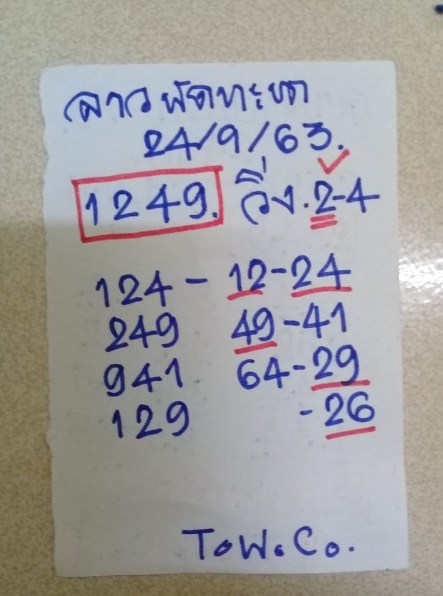 ลาวพัฒทะนา
24/9/63.
1249. วิ่ง.2-4
124 - 12-24
249 49-41
941 64-29
129 -26
T๐w.C๐.